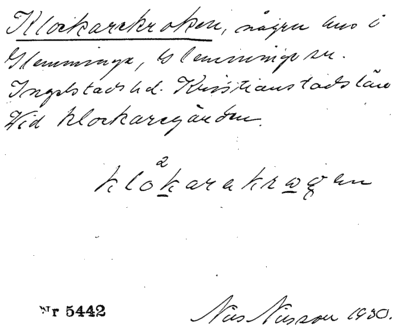 Klockarekroken, några hus i
Glemminge, Glemminge sn.
Ingelstads hd. Kristianstads län
Vid klockaregården.
2
klo k ara kr o g en
Nr 5442
Nils Nilsson 1930.